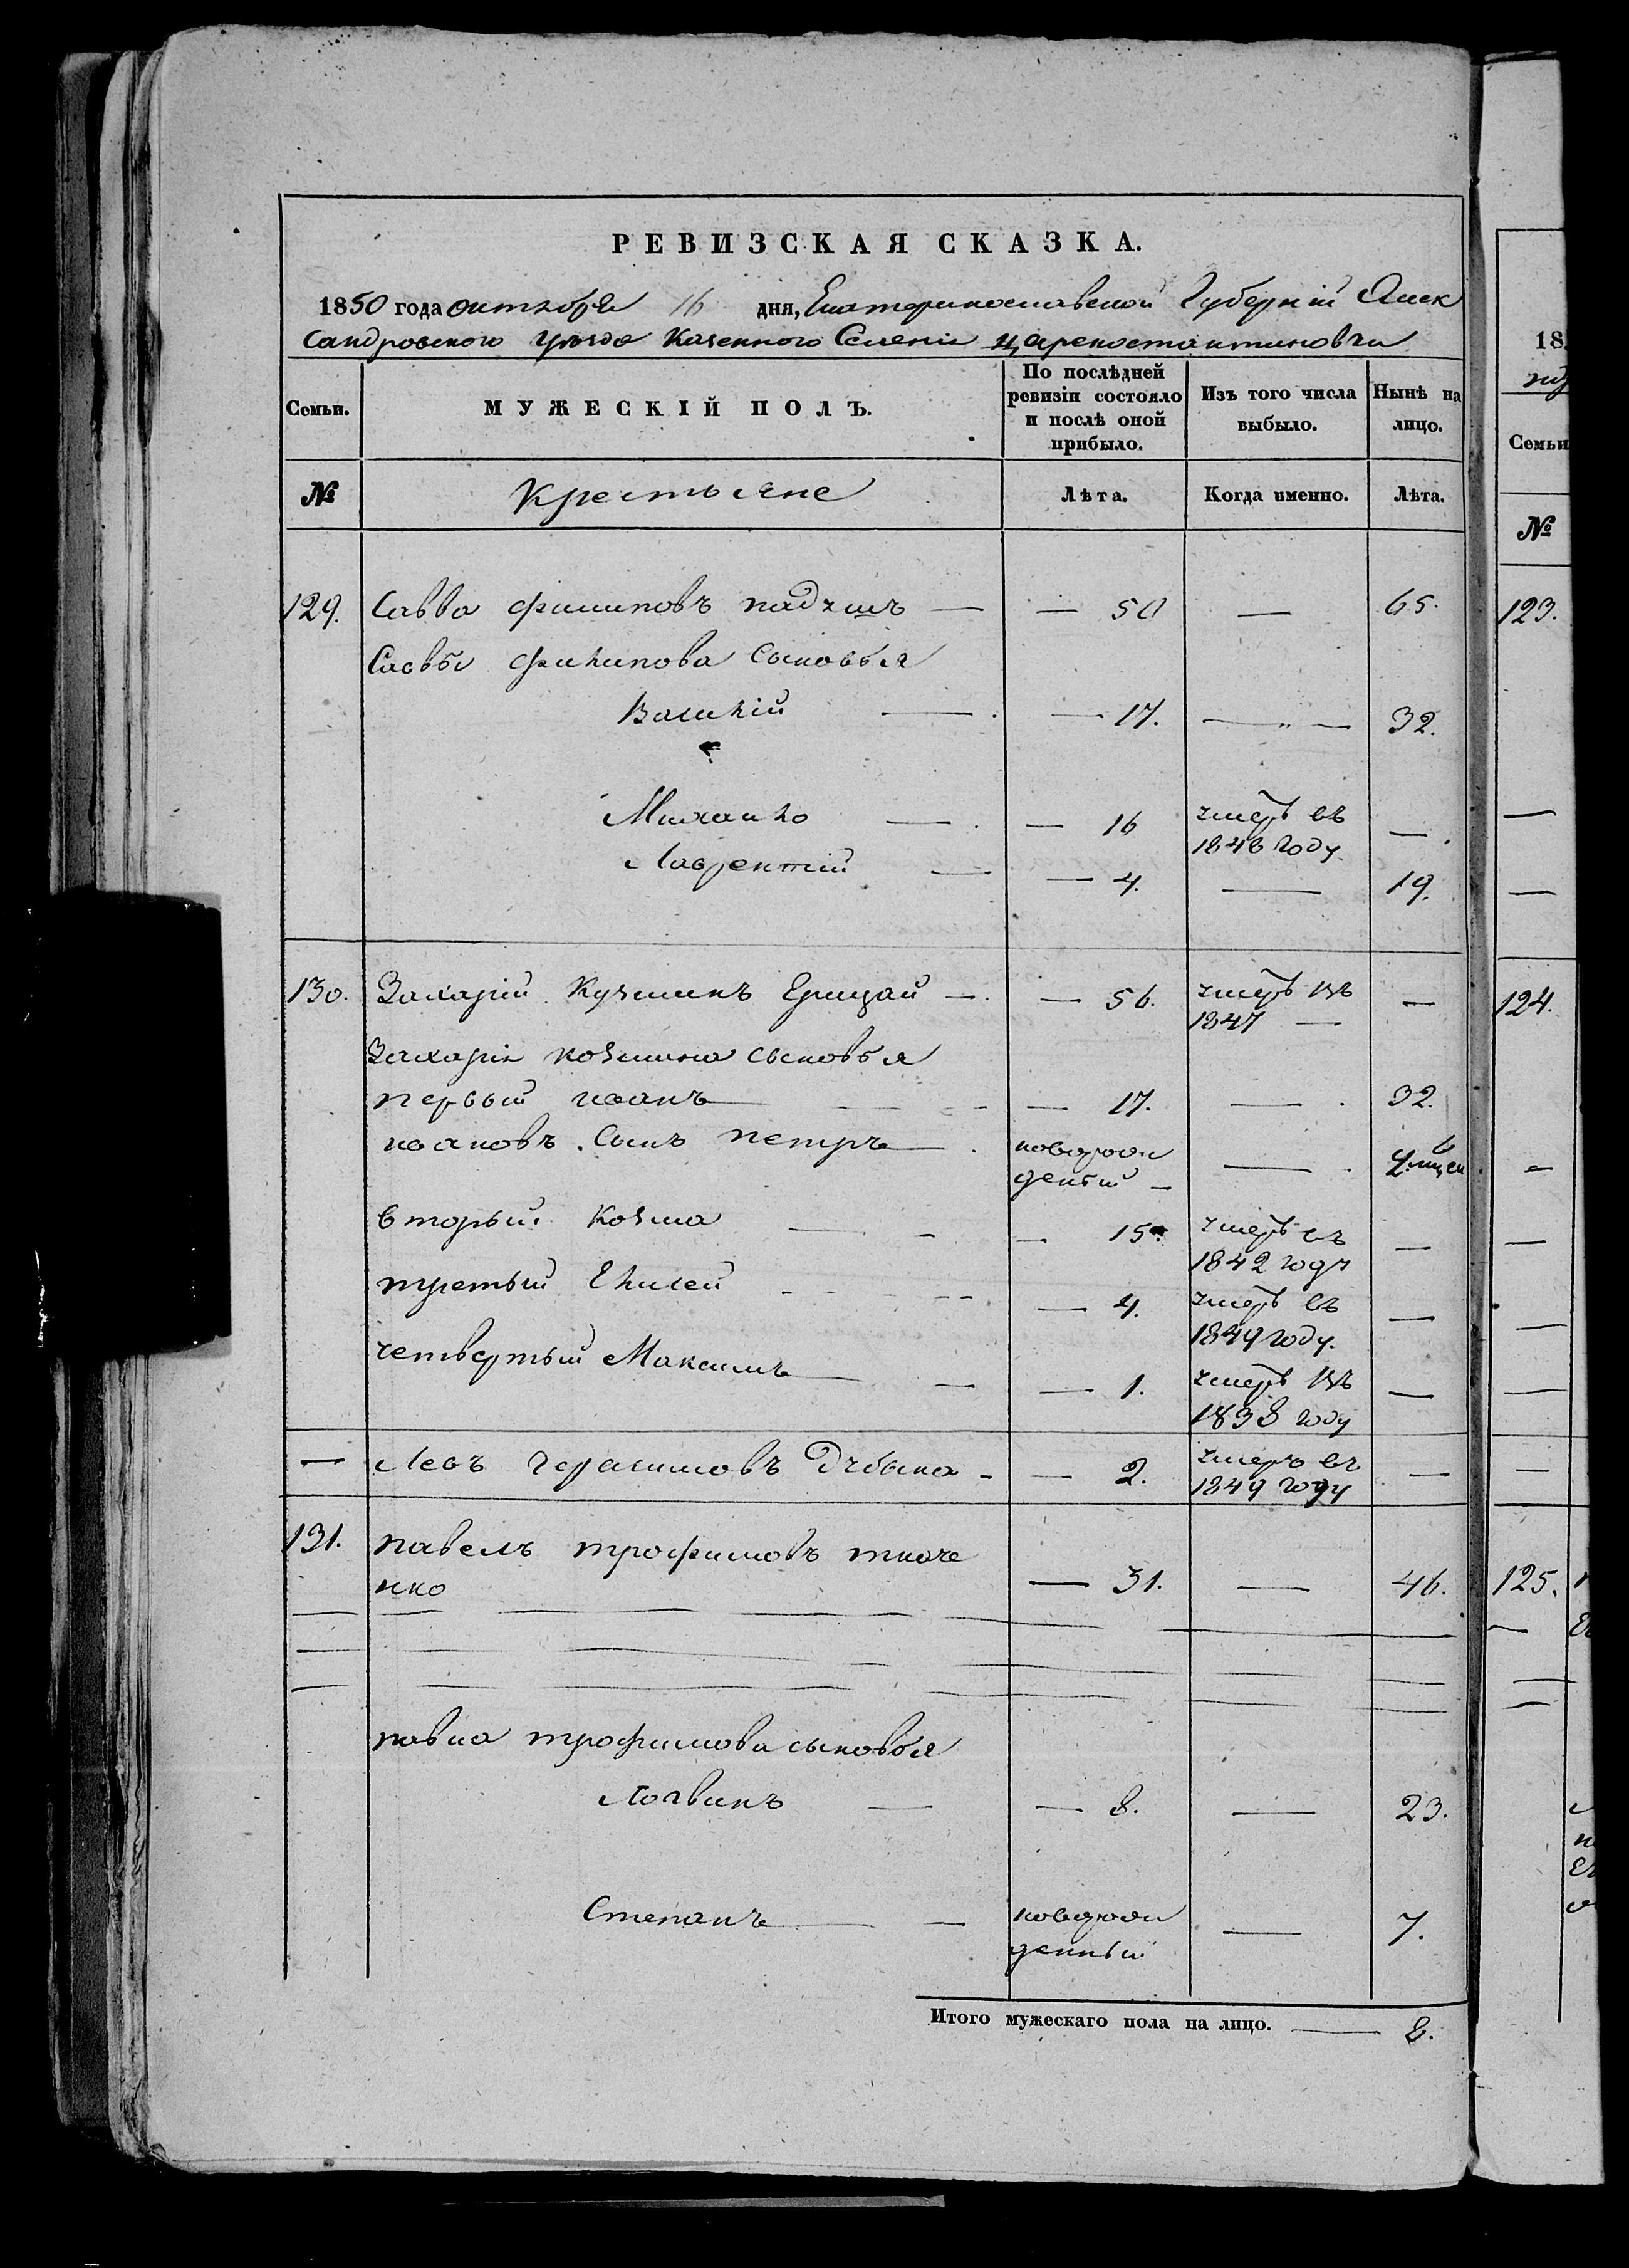 РЕВИЗСКАЯ СКАЗКА.
1850 года октября 16 дня, Екатеринославской Губернiи Алек
сандровского уѣзда Казенного Селенiя Цареконстантиновки
Семьи. МУЖЕСКIЙ ПОЛЪ. По послѣдней ревизiи состояло и послѣ оной прибыло. Изъ того числа выбыло. Нынѣ на лицо.
№ Крестьяне Лѣта. Когда именно. Лѣта.
129. Савва Филиповъ — 50 — 65.
Саввы Филипова Сыновья
Василiй — 17. — 32.
Михайло — 16 умеръ въ 1848 году —
Лаврентiй — 4. — 19.
130. Захарiй Кузминъ Грицай — 56. умеръ въ 1847 —
Захарiя Козмина сыновья
первый иванъ — 17. — 32.
ивановъ Сынъ петръ новорож
денный —
вторый Козма — 15. умеръ въ 1842 году —
третый Елисей — 4. умеръ въ 1849 году. —
четвертый Максимъ — 1. умеръ въ 1838 году —
— Левъ Герасимовъ — 2. умеръ въ 1849 году —
131. павелъ трофимовъ ткаче
нко — 31. — 46.
павла трофимова сыновья
Логвинъ — 8. — 23.
Степанъ — новорож
денный — 7.
Итого мужескаго пола на лицо. — 8.
18
Семьи
№
123.
124.
125.